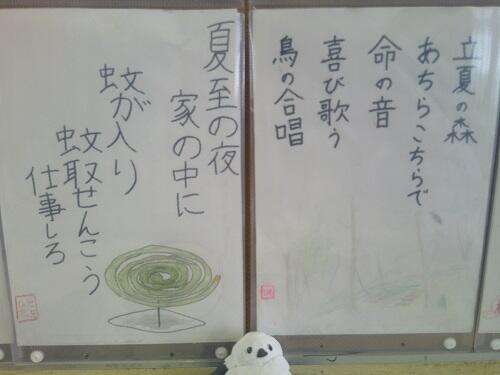 立夏の森
あちらこちらで
命の音
喜び歌う
鳥の合唱
夏至の夜
家の中に
蚊が入り
蚊取せんこう
仕事しろ